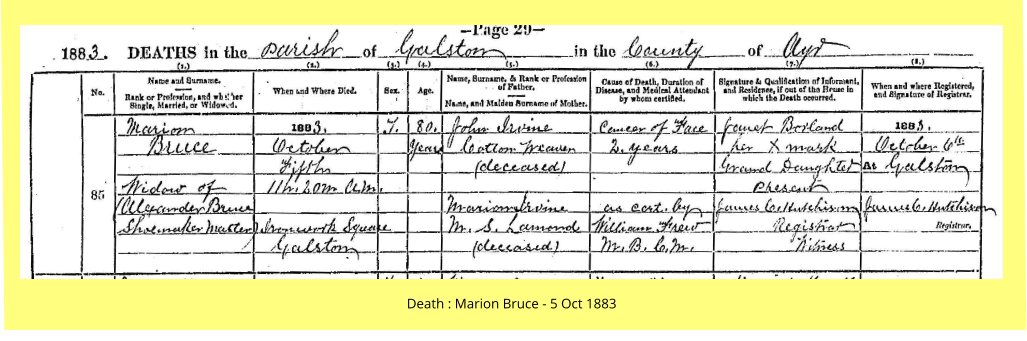 —Page 29—
1883. DEATHS in the Parish of Galston in the County of Ayr
(1.) (2.) (3.) (4.) (5.) (6.) (7.) (8.)
No.
Name and Surname.
Rank or Profession, and whether
Single, Married, or Widowed.
When and Where Died.
Sex.
Age.
Name, Surname, & Rank or Profession
of Father.
Name, and Maiden Surname of Mother.
Cause of Death, Duration of
Disease, and Medical Attendant
by whom certified.
Signature & Qualification of Informant,
and Residence, if out of the House in
which the Death occurred.
When and where Registered,
and Signature of Registrar.
85
Marion
Bruce
Widow of
Alexander Bruce
Shoemaker Master
1883.
October
Fifth
11h. 20m A.M.
Square
Galston
F.
80.
Years
John Irvine
Cotton Weaver
(deceased)
Marion Irvine
M. S. Lamond
(deceased)
Cancer of Face
2 years
as cert. by
William Frew
M. B. C. M.
Janet Borland
her X mark
Grand Daughter
Present
James C. Hutchison
Registrar
Witness
1883.
October 6th
At Galston
James C. Hutchison
Registrar.
Death : Marion Bruce - 5 Oct 1883